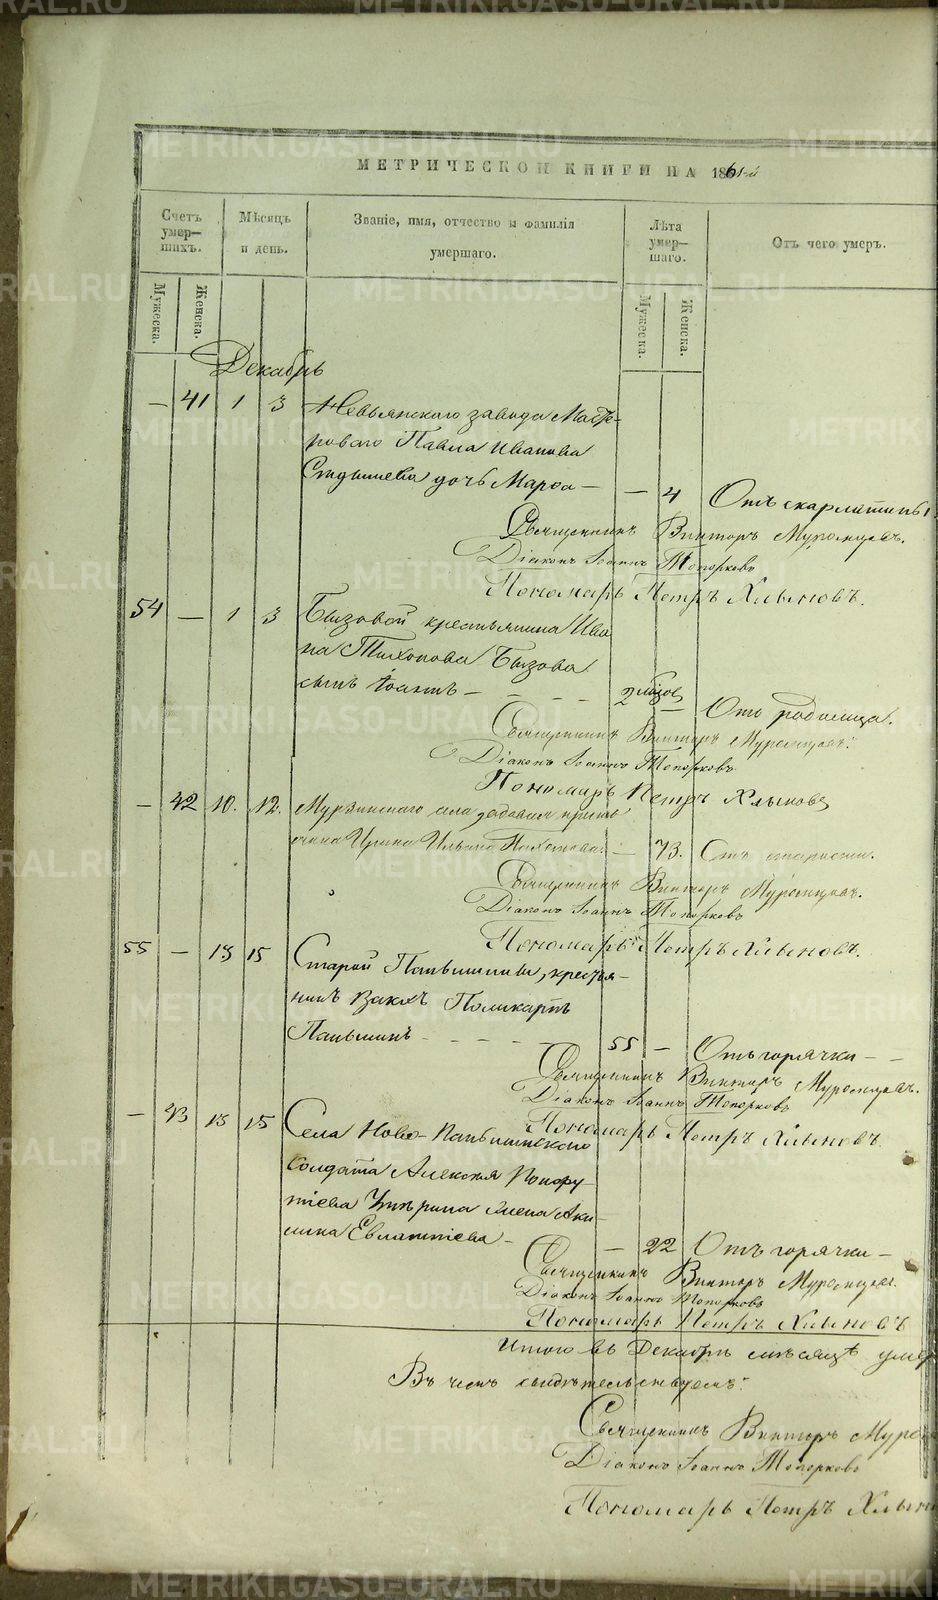 МЕТРИЧЕСКОЙ КНИГИ НА 1861-й
Счетъ умер-
шихъ.
Мѣсяцъ
и день.
Званіе, имя, отчество и фамилія
умершаго.
Лѣта
умер-
шаго.
Отъ чего умеръ.
Мужеска.
Женска.
Мужеска.
Женска.
Декабрь
— 41 1 3 Невьянскаго завода Масте-
роваго Павла Иванова
дочь Марѳа — — 4 Отъ скарлатины
Священникъ Викторъ Муромцевъ.
Діаконъ Іоаннъ Топорковъ
Пономарь Петръ Хлыновъ.
54 — 1 3 Бызовой крестьянина Ива
на Тихонова Бызова
сынъ Іоаннъ — 2 — Отъ родимца.
Священникъ Викторъ Муромцевъ.
Діаконъ Іоаннъ Топорковъ
Пономарь Петръ Хлыновъ
— 42 10. 12. Мурзинскаго села
Ирина Ильина — 73. Отъ старости.
Священникъ Викторъ Муромцевъ.
Діаконъ Іоаннъ Топорковъ
Пономарь Петръ Хлыновъ.
55 — 13 15 Старой Паньшины, крестья-
нинъ Поликарпъ
Паньшинъ — 55 — Отъ горячки —
Священникъ Викторъ Муромцевъ.
Діаконъ Іоаннъ Топорковъ
Пономарь Петръ Хлыновъ.
— 43 13 15 Села Ново-Паньшинскаго
солдата Алексея
жена Аки-
лина — — 22 Отъ горячки —
Священникъ Викторъ Муромцевъ.
Діаконъ Іоаннъ Топорковъ
Пономарь Петръ Хлыновъ
Итого въ Декабрѣ мѣсяцѣ умер
Въ чемъ свидѣтельствуемъ:
Священникъ Викторъ Муром
Діаконъ Іоаннъ Топорковъ
Пономарь Петръ Хлын
METRIKI.GASO-URAL.RU